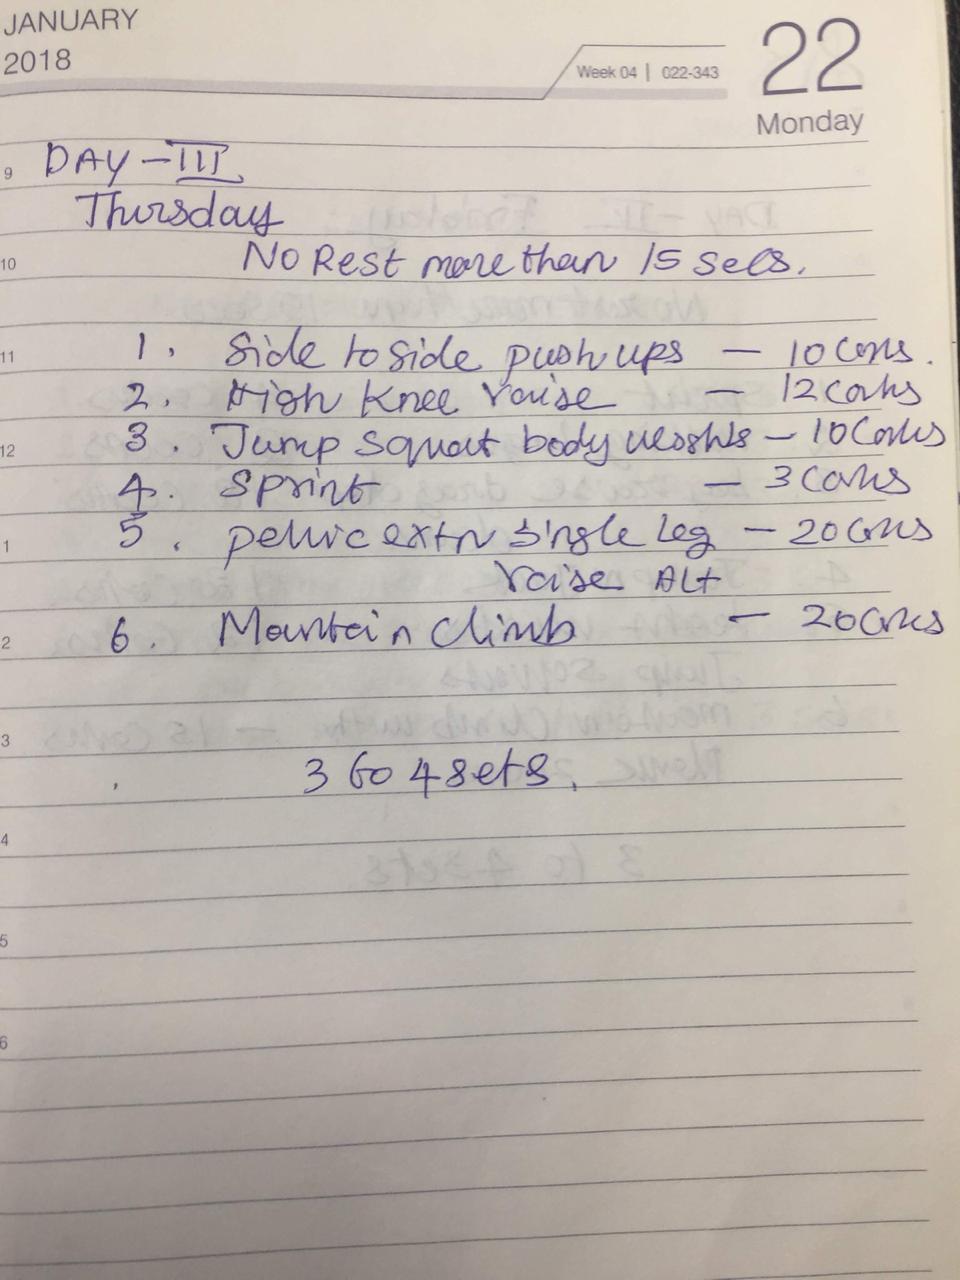 JANUARY
2018
Week 04 | 022-343
22
Monday
9 DAY - III
Thursday
10 No Rest more than 15 secs.
11 1. Side to side push ups - 10 Cons.
2. High Knee raise - 12 Cons
12 3. Jump squat body weights - 10 Cons
4. Sprint - 3 Cons
1 5. pelvic extn single leg - 20 Cons
raise Alt
2 6. Mountain Climb - 20 Cons
3
3 to 4 sets.
4
5
6